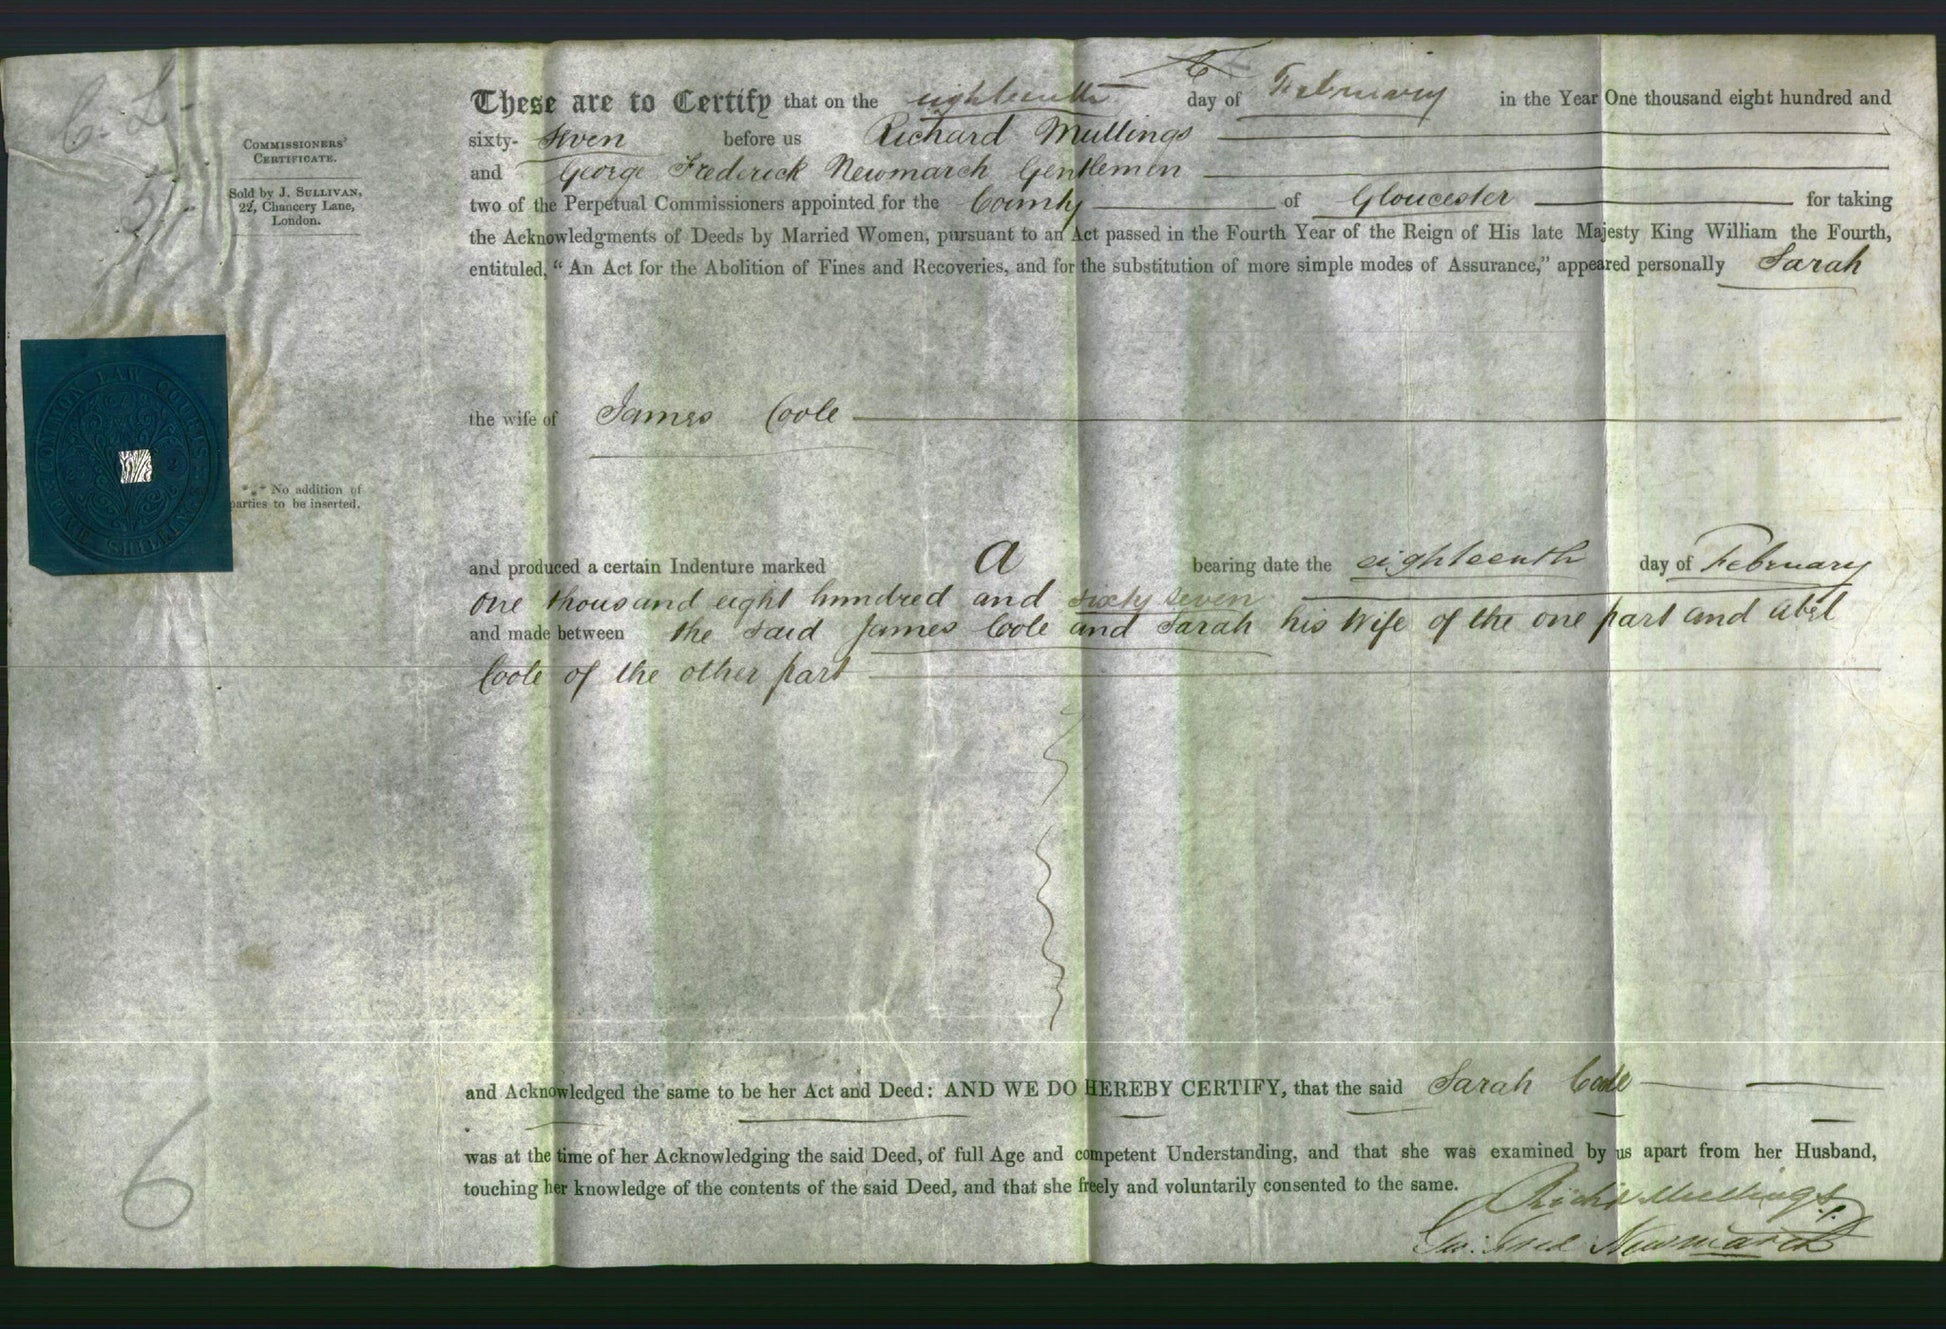 C. L.
5/-
COMMISSIONERS'
CERTIFICATE.
Sold by J. SULLIVAN,
22, Chancery Lane,
London.
These are to Certify that on the eighteenth day of February in the Year One thousand eight hundred and
sixty- seven before us Richard Mullings
and George Frederick Newmarch Gentlemen
two of the Perpetual Commissioners appointed for the County of Gloucester for taking
the Acknowledgments of Deeds by Married Women, pursuant to an Act passed in the Fourth Year of the Reign of His late Majesty King William the Fourth,
entituled, "An Act for the Abolition of Fines and Recoveries, and for the substitution of more simple modes of Assurance," appeared personally Sarah
the wife of James Coole
COMMON LAW COURTS
SHILLINGS
*** No addition of
parties to be inserted.
and produced a certain Indenture marked A bearing date the eighteenth day of February
One thousand eight hundred and sixty seven
and made between the said James Coole and Sarah his Wife of the one part and Abel
Coole of the other part
and Acknowledged the same to be her Act and Deed: AND WE DO HEREBY CERTIFY, that the said Sarah Coole
was at the time of her Acknowledging the said Deed, of full Age and competent Understanding, and that she was examined by us apart from her Husband,
touching her knowledge of the contents of the said Deed, and that she freely and voluntarily consented to the same.
Richd Mullings
Geo: Fred Newmarch
6